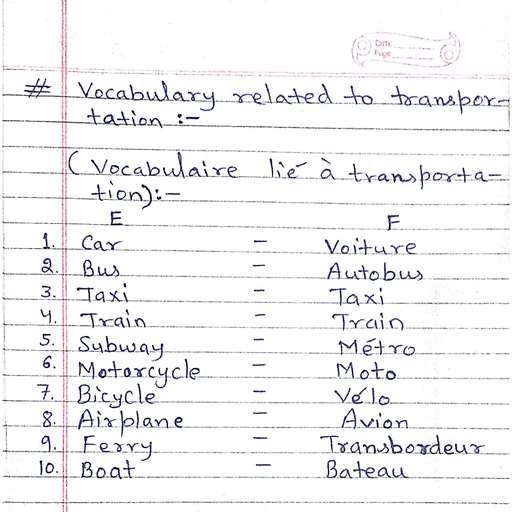 Date
Page
# Vocabulary related to transpor-
tation :-
(Vocabulaire lié à transporta-
tion):-
E F
1. Car - Voiture
2. Bus - Autobus
3. Taxi - Taxi
4. Train - Train
5. Subway - Métro
6. Motorcycle - Moto
7. Bicycle - Vélo
8. Airplane - Avion
9. Ferry - Transbordeur
10. Boat - Bateau